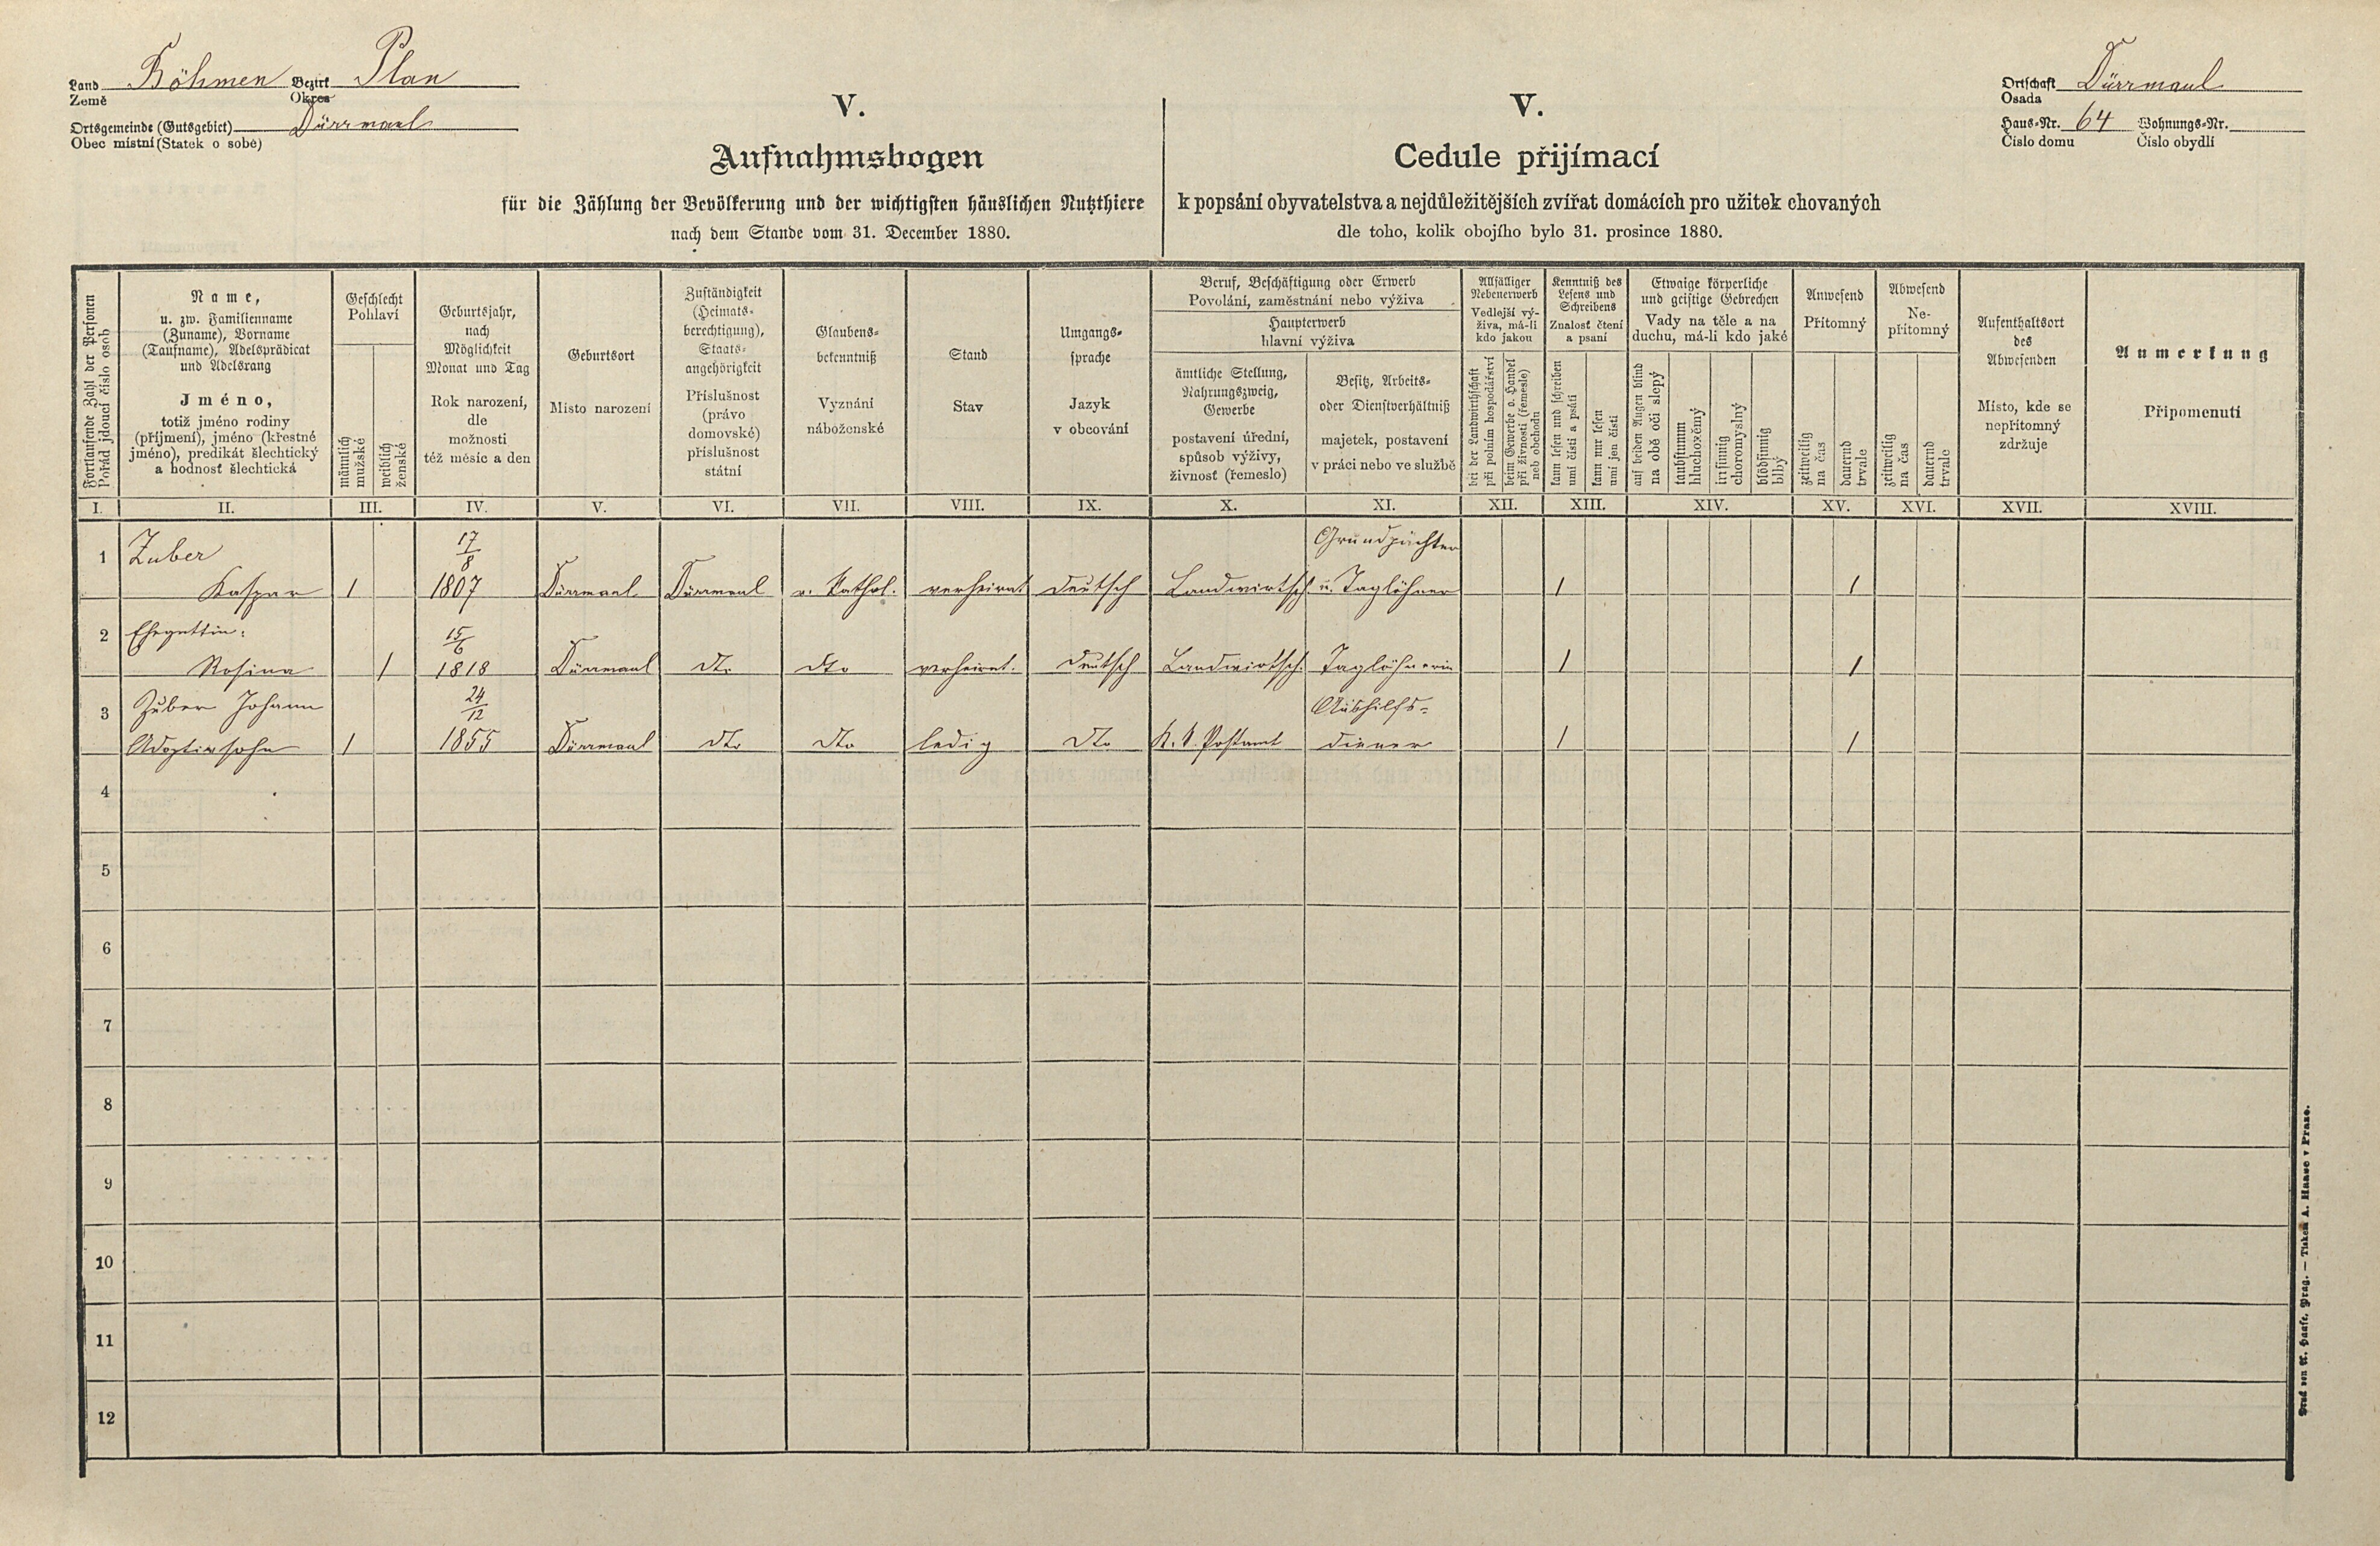 Land Böhmen Bezirk Plan
Země Okres
Ortsgemeinde (Gutsgebiet) Dürrmaul
Obec místní (Statek o sobě)
Ortschaft Dürrmaul
Osada
Haus-Nr. 64 Wohnungs-Nr.
Číslo domu Číslo obydlí
V.
Aufnahmsbogen
für die Zählung der Bevölkerung und der wichtigsten häuslichen Nutzthiere
nach dem Stande vom 31. December 1880.
V.
Cedule přijímací
k popsání obyvatelstva a nejdůležitějších zvířat domácích pro užitek chovaných
dle toho, kolik obojího bylo 31. prosince 1880.
Fortlaufende Zahl der Personen
Pořád jdoucí číslo osob
Name,
u. zw. Familienname
(Zuname), Vorname
(Taufname), Adelsprädicat
und Adelsrang
Jméno,
totiž jméno rodiny
(příjmení), jméno (křestné
jméno), predikát šlechtický
a hodnosť šlechtická
Geschlecht
Pohlaví
männlich
mužské
weiblich
ženské
Geburtsjahr,
nach
Möglichkeit
Monat und Tag
Rok narození,
dle
možnosti
též měsíc a den
Geburtsort
Místo narození
Zuständigkeit
(Heimats-
berechtigung),
Staats-
angehörigkeit
Příslušnost
(právo
domovské)
příslušnost
státní
Glaubens-
bekenntniß
Vyznání
náboženské
Stand
Stav
Umgangs-
sprache
Jazyk
v obcování
Beruf, Beschäftigung oder Erwerb
Povolání, zaměstnání nebo výživa
Haupterwerb
hlavní výživa
ämtliche Stellung,
Nahrungszweig,
Gewerbe
postavení úřední,
spůsob výživy,
živnosť (řemeslo)
Besitz, Arbeits-
oder Dienstverhältniß
majetek, postavení
v práci nebo ve službě
Allfälliger
Nebenerwerb
Vedlejší vý-
živa, má-li
kdo jakou
bei der Landwirthschaft
při polním hospodářství
beim Gewerbe o. Handel
při živnosti (řemesle)
nob obchodu
Kenntniß des
Lesens und
Schreibens
Znalosť čtení
a psaní
kann lesen und schreiben
umí čísti a psáti
kann nur lesen
umí jen čísti
Etwaige körperliche
und geistige Gebrechen
Vady na těle a na
duchu, má-li kdo jaké
auf beiden Augen blind
na obě oči slepý
taubstumm
hluchoněmý
irrsinnig
choromyslný
blödsinnig
blbý
Anwesend
Přítomný
zeitweilig
na čas
dauernd
trvale
Abwesend
Ne-
přítomný
zeitweilig
na čas
dauernd
trvale
Aufenthaltsort
des
Abwesenden
Místo, kde se
nepřítomný
zdržuje
Anmerkung
Připomenutí
I. II. III. IV. V. VI. VII. VIII. IX. X. XI. XII. XIII. XIV. XV. XVI. XVII. XVIII.
1 Zuber 17/8 Grundpächter
Kaspar 1 1807 Dürrmaul Dürrmaul r. Kathol. verheirat deutsch Landwirtsch. u. Taglöhner 1 1
2 Ehegattin: 15/6
Rosina 1 1818 Dürrmaul dto dto verheirat. deutsch Landwirtsch. Taglöhnerin 1 1
3 Zuber Johann 24/12 Aushilfs-
Adoptivsohn 1 1855 Dürrmaul dto dto ledig dto k. k. Postamt diener 1 1
4
5
6
7
8
9
10
11
12
Druck von A. Haase, Prag. — Tiskem A. Haase v Praze.